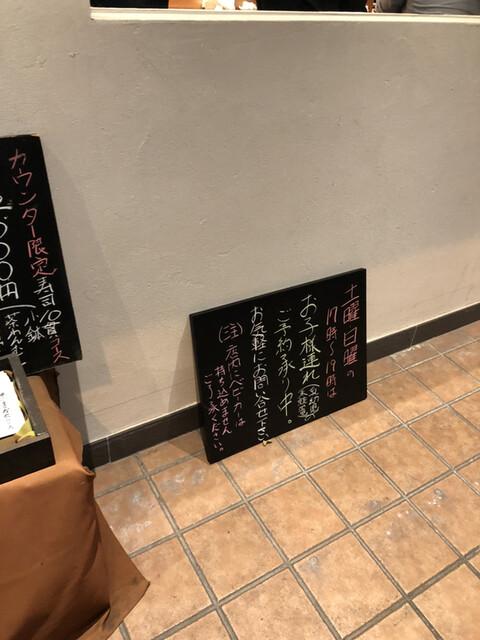 土曜日曜の
17時～19時は
お子様連れ
ご予約承り中。
お気軽にお問合せ下さい。
(注) 店内にベビーカーは
持ち込めません
ご了承ください。
カウンター限定寿司10貫コース
000円
小鉢
茶わんむ